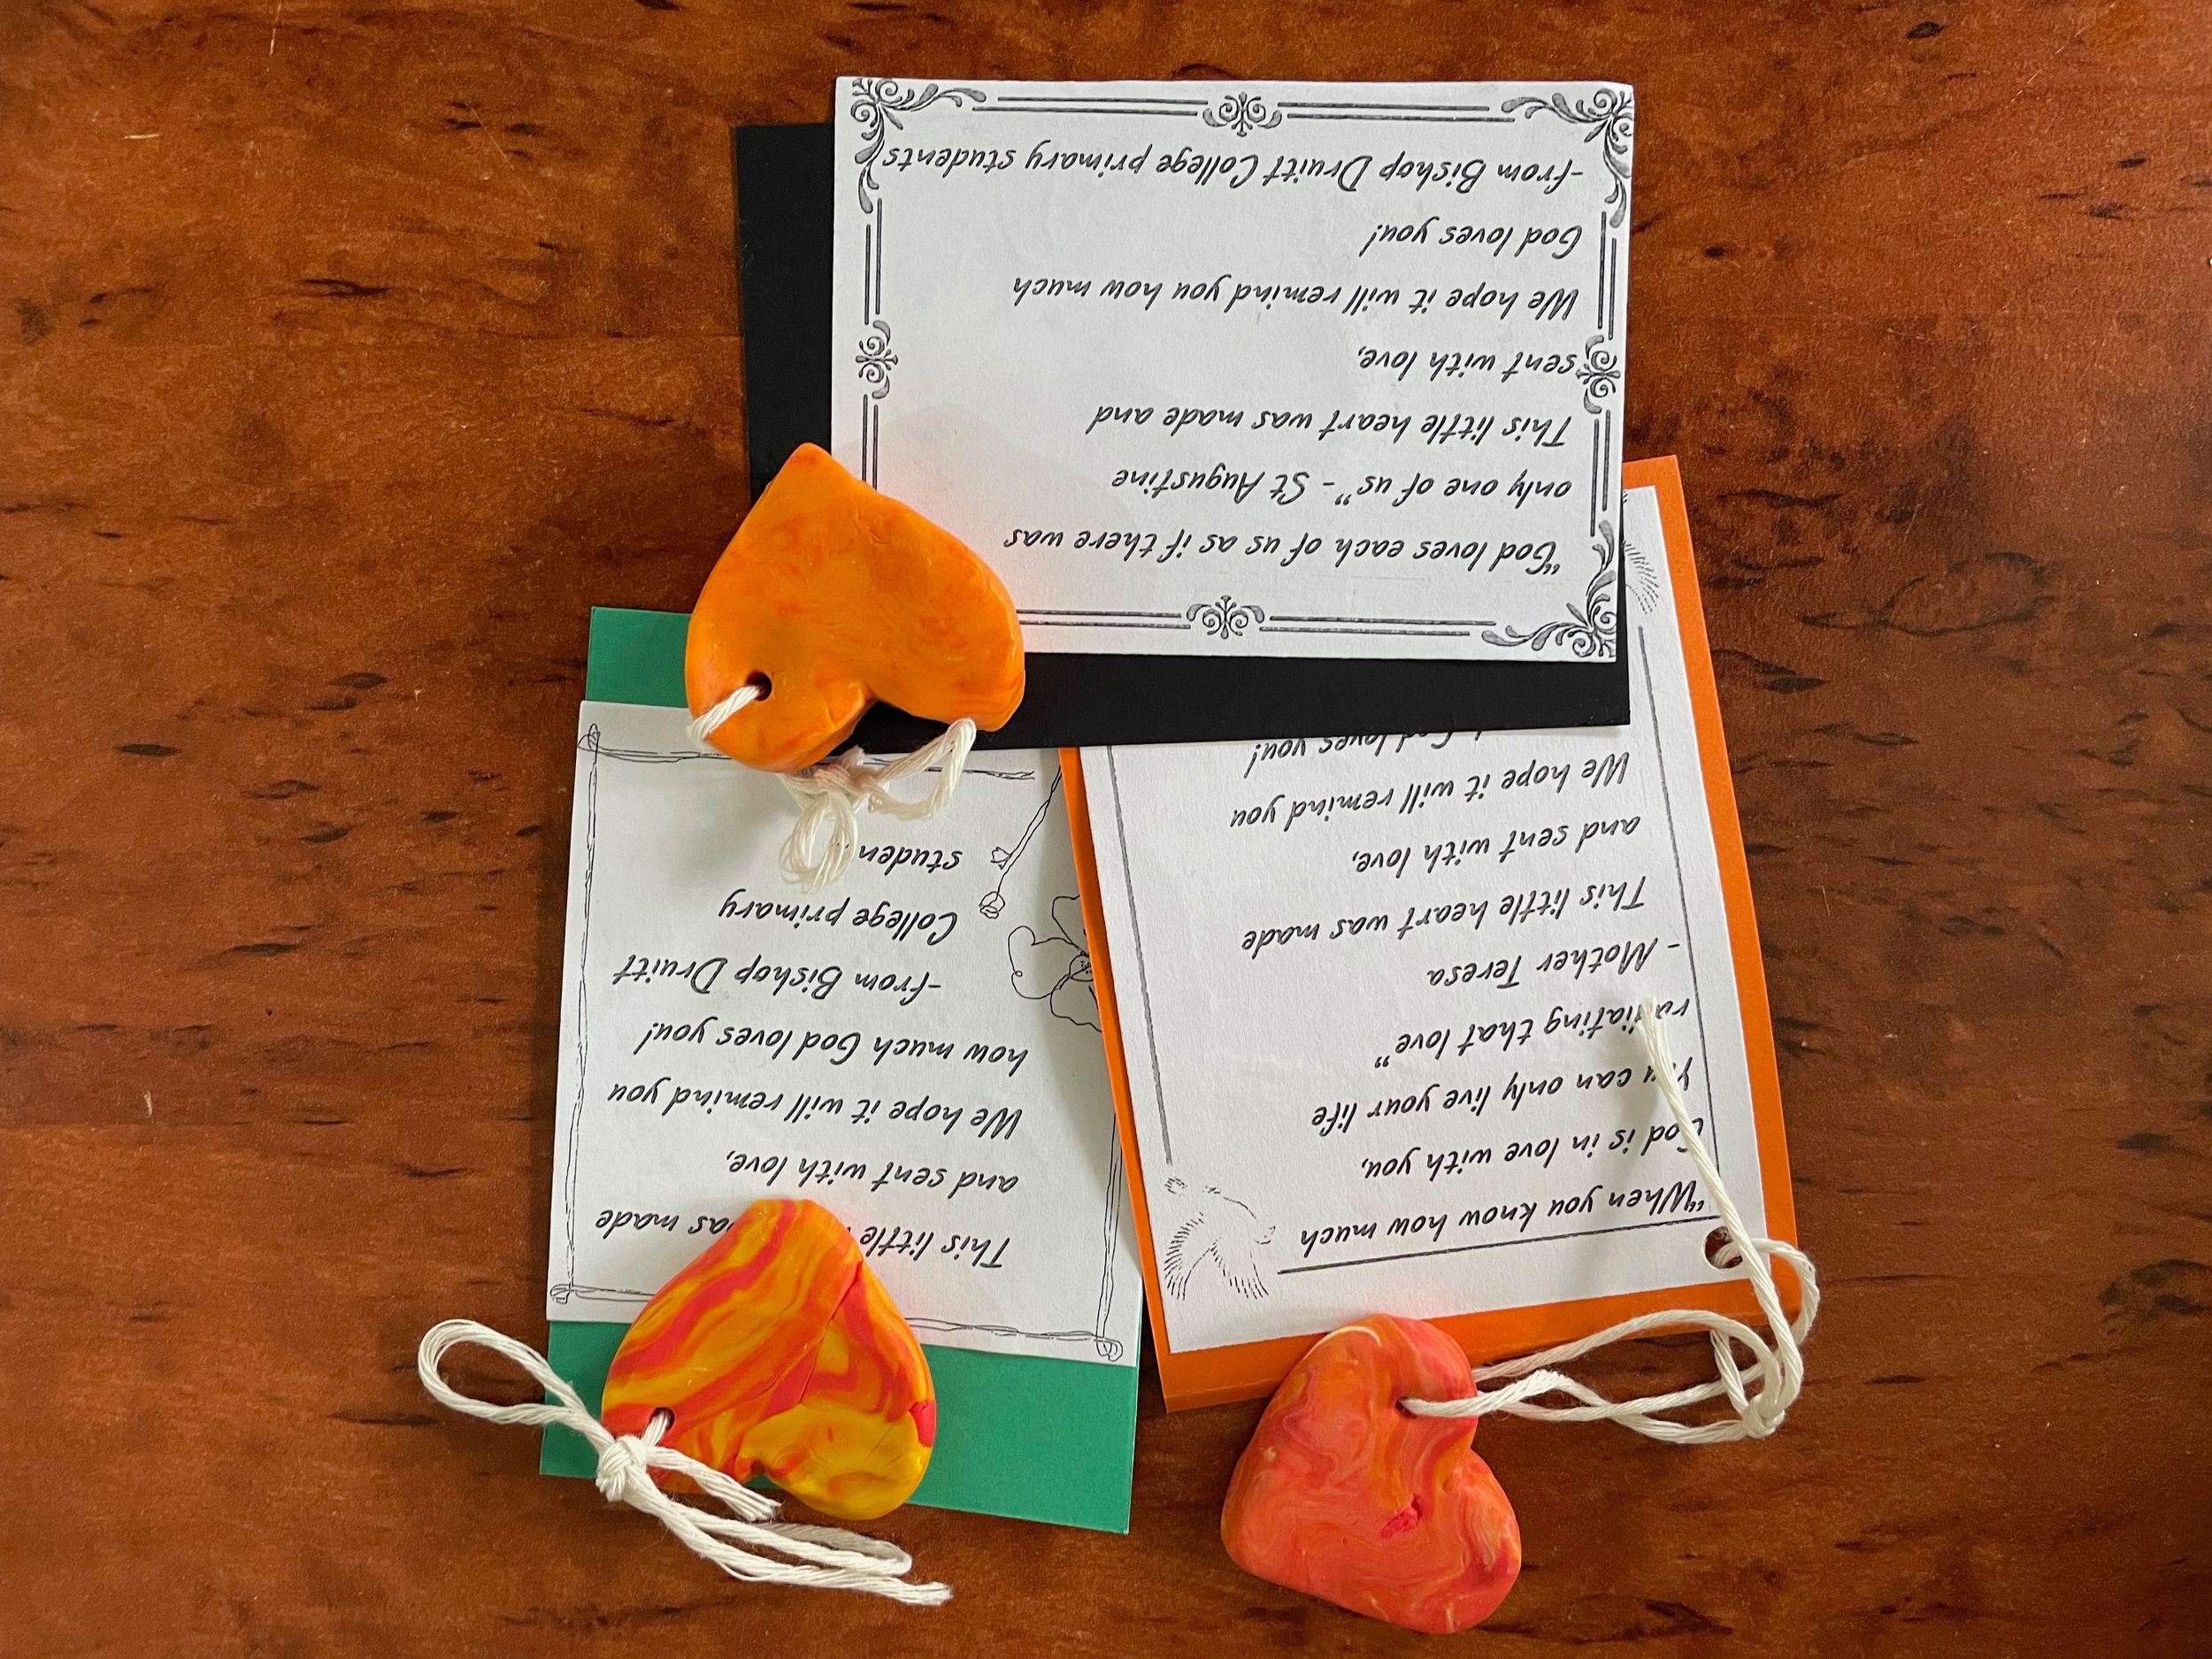 "God loves each of us as if there was
only one of us" - St Augustine
This little heart was made and
sent with love,
We hope it will remind you how much
God loves you!
-from Bishop Druitt College primary students
"When you know how much
God is in love with you,
you can only live your life
radiating that love"
- Mother Teresa
This little heart was made
and sent with love,
We hope it will remind you
God loves you!
This little was made
and sent with love,
We hope it will remind you
how much God loves you!
-from Bishop Druitt
College primary
studen